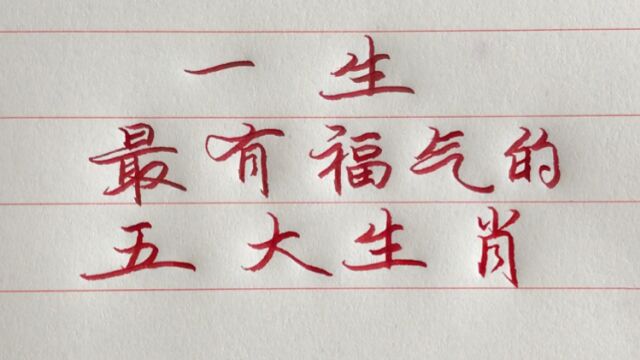 一生
最有福气的
五大生肖